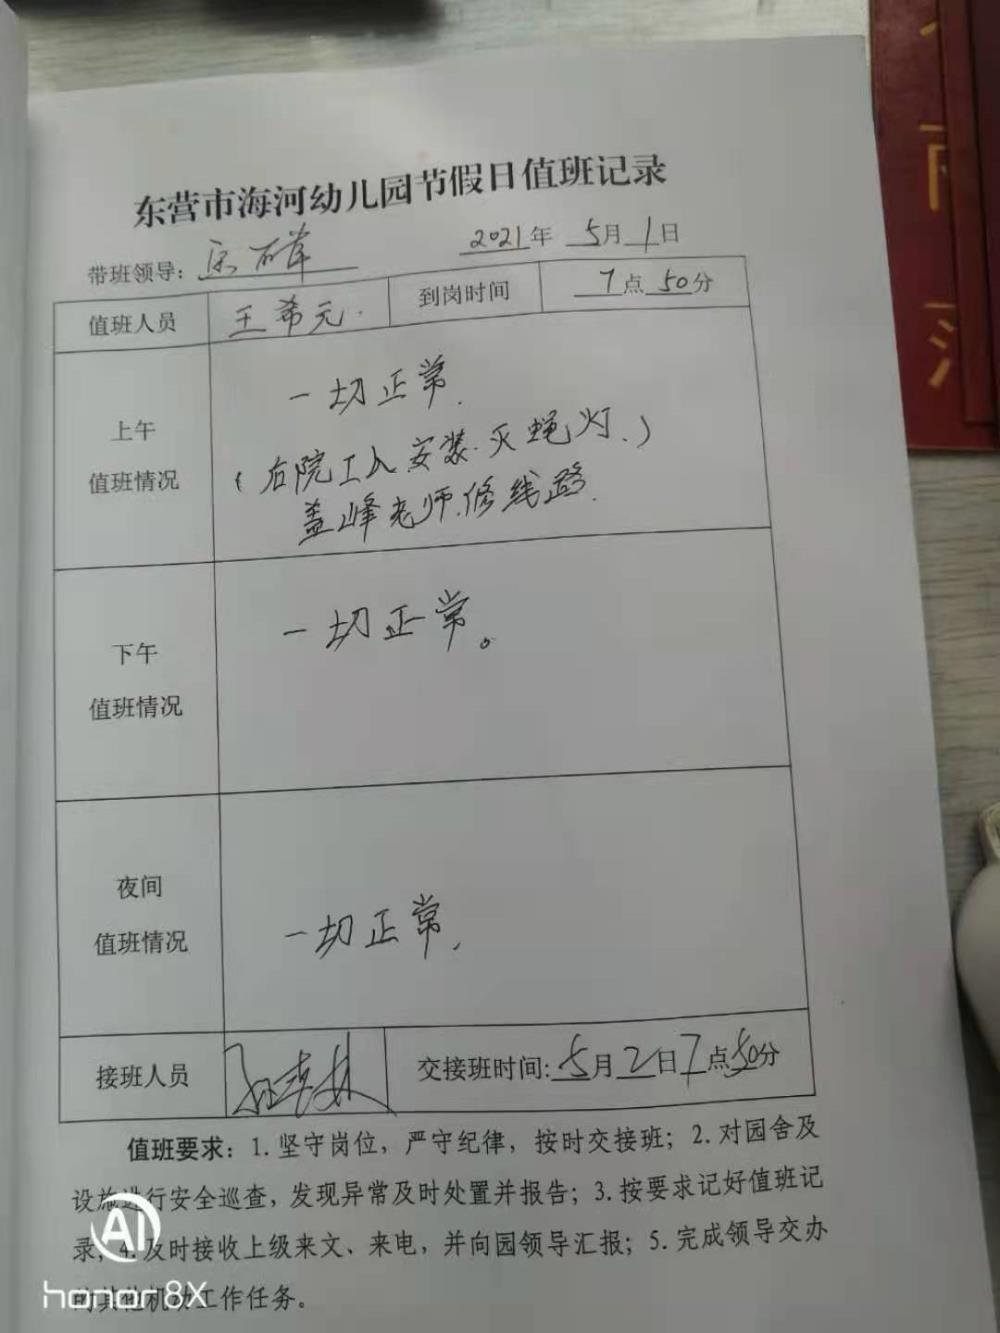 东营市海河幼儿园节假日值班记录
带班领导: 2021年 5月1日
值班人员 王希元. 到岗时间 7点50分
上午
值班情况
一切正常.
(后院工人安装.灭蝇灯.)
盖峰老师.修线路.
下午
值班情况
一切正常。
夜间
值班情况
一切正常,
接班人员 交接班时间:5月2日7点50分
值班要求: 1. 坚守岗位, 严守纪律, 按时交接班; 2. 对园舍及
设施进行安全巡查, 发现异常及时处置并报告; 3. 按要求记好值班记
录; 4. 及时接收上级来文、来电, 并向园领导汇报; 5. 完成领导交办
的其他机动工作任务。
AI
honor 8X